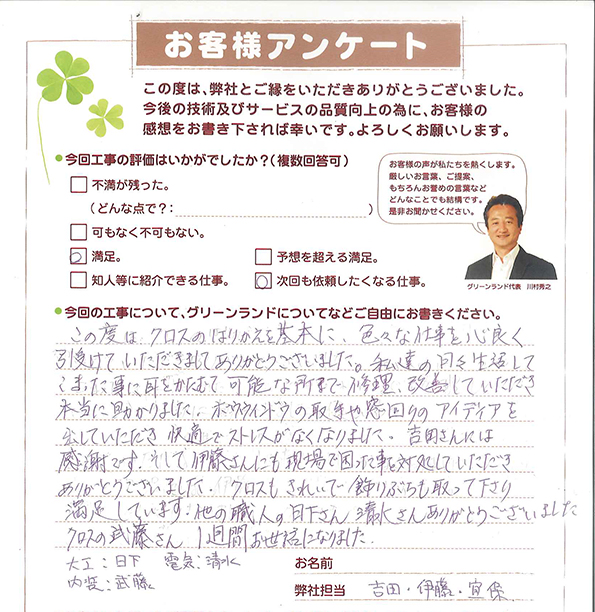 お客様アンケート
この度は、弊社とご縁をいただきありがとうございました。
今後の技術及びサービスの品質向上の為に、お客様の
感想をお書き下されば幸いです。よろしくお願いします。
今回工事の評価はいかがでしたか？（複数回答可）
不満が残った。
（どんな点で？：　）
可もなく不可もない。
満足。
予想を超える満足。
知人等に紹介できる仕事。
次回も依頼したくなる仕事。
お客様の声が私たちを熱くします。
厳しいお言葉、ご提案、
もちろんお誉めの言葉など
どんなことでも結構です。
是非お聞かせください。
グリーンランド代表　川村秀之
今回の工事について、グリーンランドについてなどご自由にお書きください。
この度は、クロスのはりかえを基本に、色々な仕事を心良く
引受けていただきましてありがとうございました。私達の日々生活して
こまった事に耳をかたむて可能な所まで修理、改善していただき
本当に助かりました。ボウウインドウの取手や窓回りのアイディアを
出していただき快適でストレスがなくなりました。吉田さんには
感謝です。そして伊藤さんにも現場で困った事を対処していただき
ありがとうございました。クロスもきれいで飾りぶちも取って下り
満足しています。他の職人の日下さん清水さんありがとうございました
クロスの武藤さん1週間お世話になりました。
大工：日下　電気：清水
内装：武藤
お名前
弊社担当　吉田・伊藤・宜保